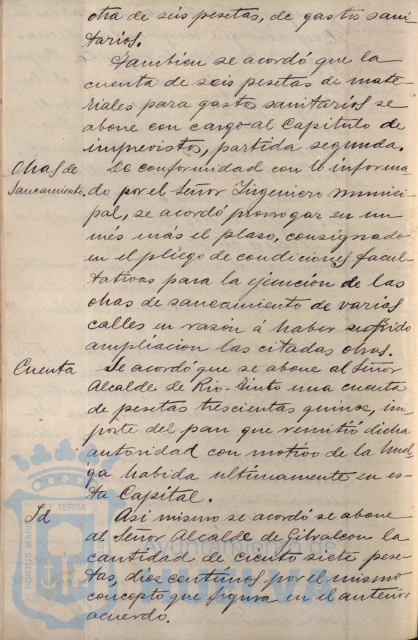 otra de seis pesetas, de gastos sani
tarios.
Tambien se acordó que la
cuenta de seis pesetas de mate
riales para gastos sanitarios se
abone con cargo al Capitulo de
imprevistos, partida segunda.
Obras de
Saneamiento.
De conformidad con lo informa
do por el Señor Ingeniero munici
pal, se acordó prorrogar en un
més más el plazo, consignado
en el pliego de condiciones facul
tativas para la ejecución de las
obras de saneamiento de varias
calles en razón á haber sufrido
ampliacion las citadas obras.
Cuenta
Se acordó que se abone al Señor
Alcalde de Rio-Tinto una cuenta
de pesetas trescientas quince, im
porte del pan que remitió dicha
autoridad con motivo de la huel
ga habida ultimamente en es
ta Capital.
Id
Asi mismo se acordó se abone
al Señor Alcalde de Gibraleon la
cantidad de ciento siete pese
tas, diez centimos por el mismo
concepto que figura en el anterior
acuerdo.